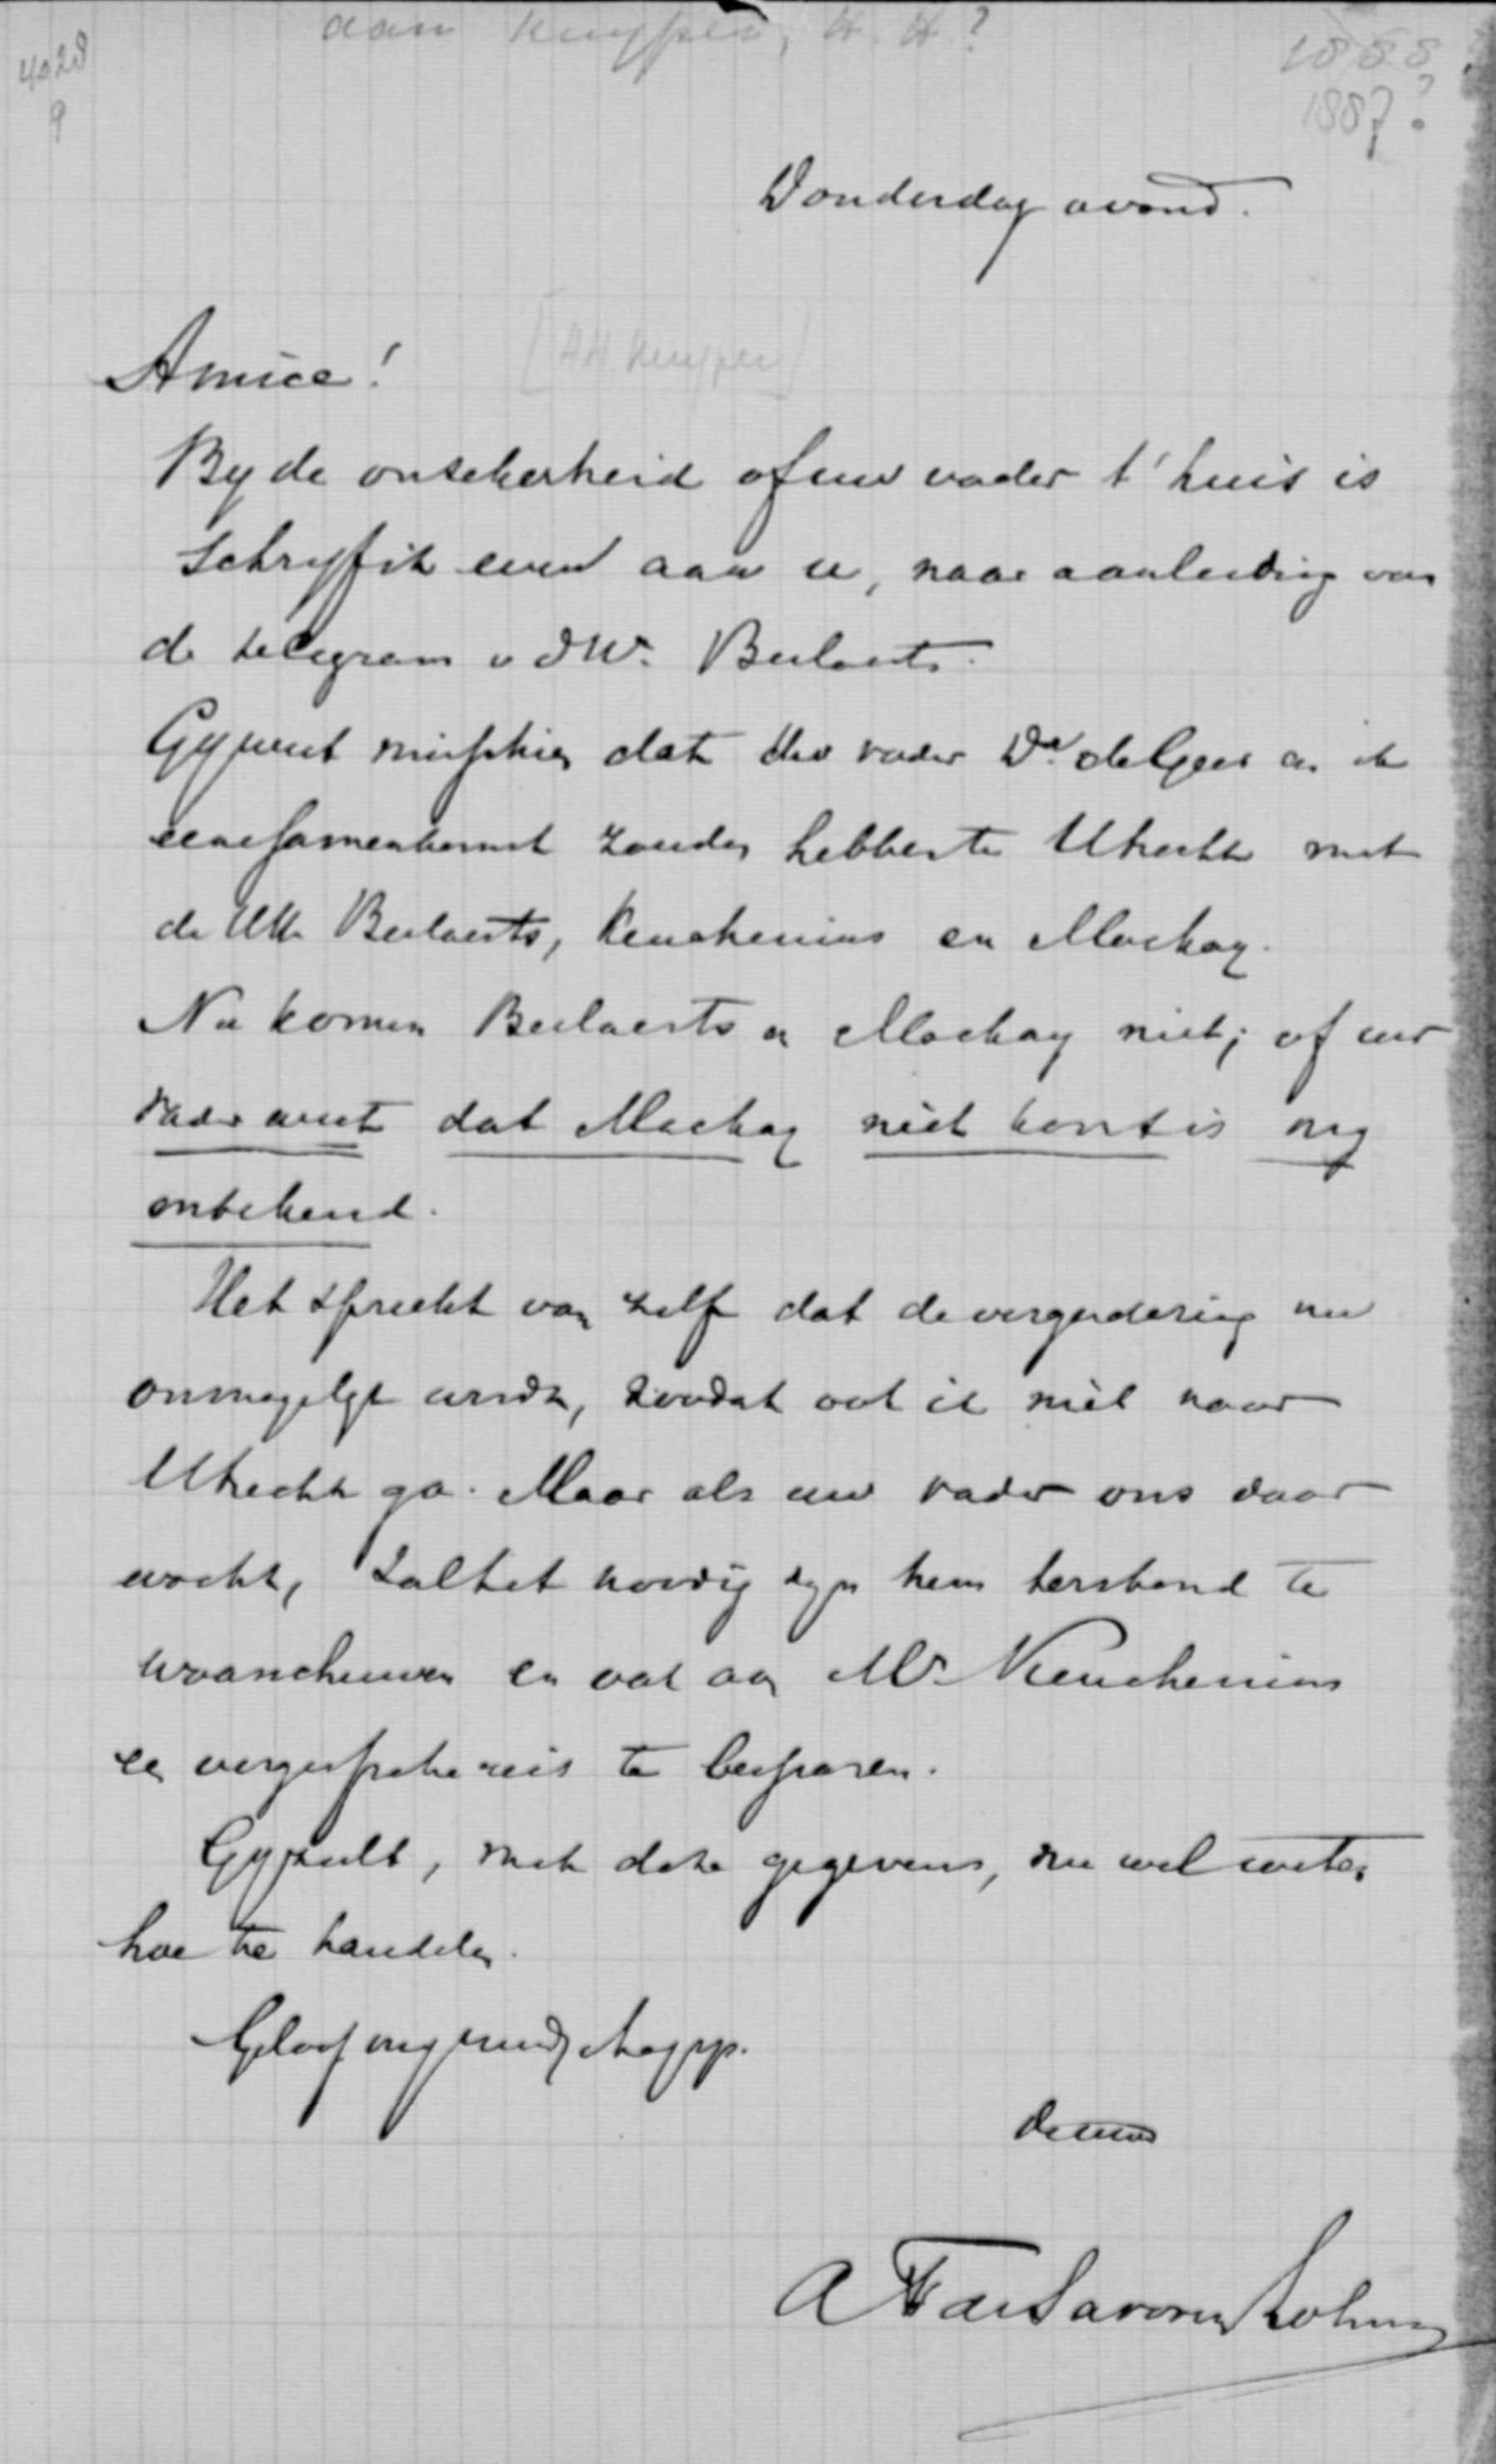 aan Kuyper, H. H?
4028
9
1888
1887?
Donderdag avond.
Amice!
[HH Kuyper]
By de onzekerheid of uw vader t'huis is
schryf ik even aan u, naar aanleiding van
de telegram v d Hr. Beelaerts.
Gy weet misschien dat Uw vader Dr de Geer en ik
eene samenkomst zouden hebben te Utrecht met
de HH Beelaerts, Keuchenius en Mackay.
Nu komen Beelaerts en Mackay niet; of uw
vader weet dat Mackay niet komt is my
onbekend.
Het spreekt van zelf dat de vergadering nu
onmogelyk wordt, zoodat ook ik niet naar
Utrecht ga. Maar als uw vader ons daar
wacht, zal het noodig zyn hem terstond te
waarschuwen en ook aan Mr Keuchenius
een vergeefsche reis te besparen.
Gy zult, met deze gegevens, nu wel weten
hoe te handelen.
Geloof my vriendschapp.
de uwe
A F de Savornin Lohman